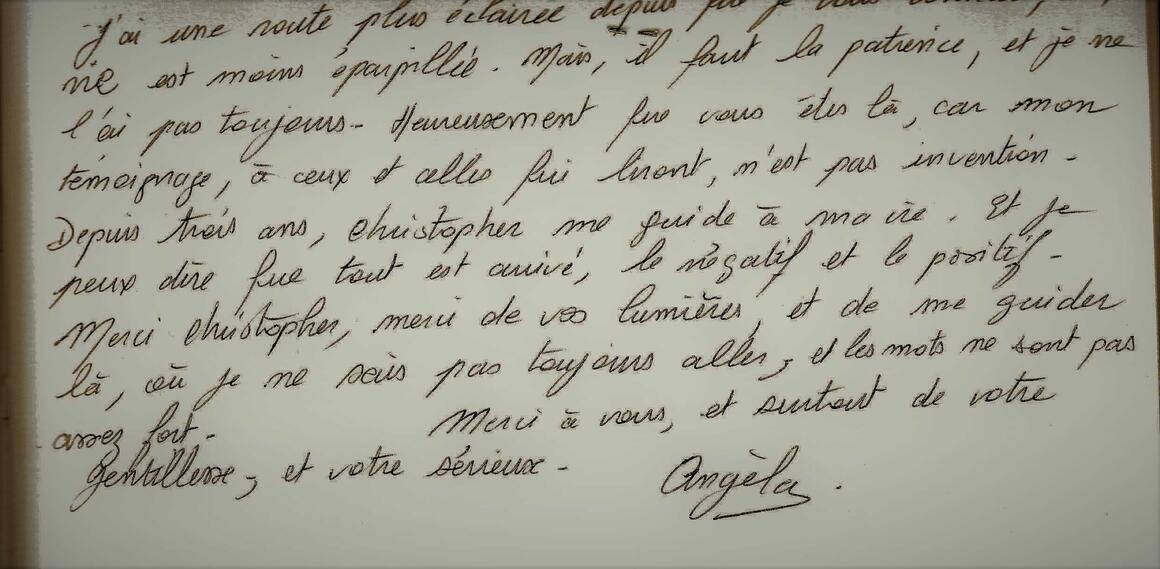 J'ai une route plus éclairée depuis que je vous
vie est moins éparpillée. Mais, il faut la patience, et je ne
l'ai pas toujours - Heureusement que vous êtes là, car mon
témoignage, à ceux et celles qui liront, n'est pas invention -
Depuis trois ans, Christopher me guide à ma vie. Et je
peux dire que tout est arrivé, le négatif et le positif -
Merci Christopher, merci de vos lumières, et de me guider
là, où je ne sais pas toujours aller, et les mots ne sont pas
assez fort - Merci à vous, et surtout de votre
gentillesse, et votre sérieux -
Angèla.